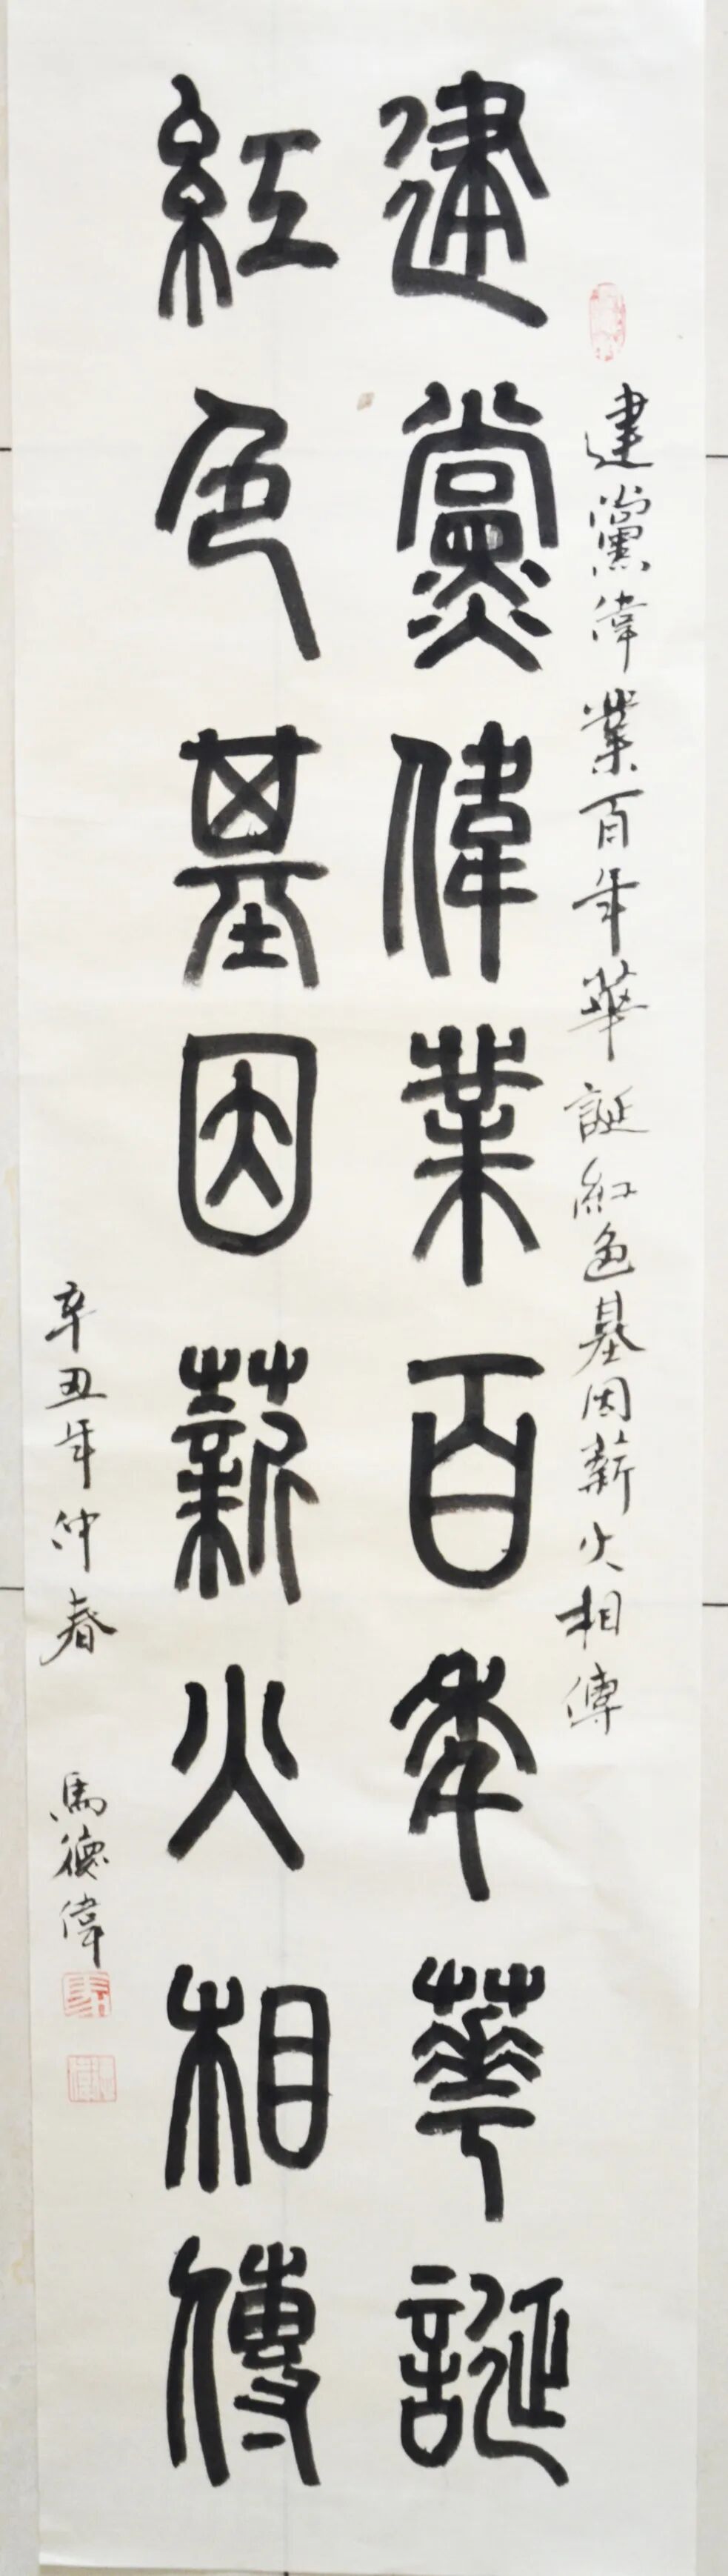 建黨偉業百年華誕紅色基因薪火相傳
建黨偉業百年華誕
紅色基因薪火相傳
辛丑年仲春 馬德偉